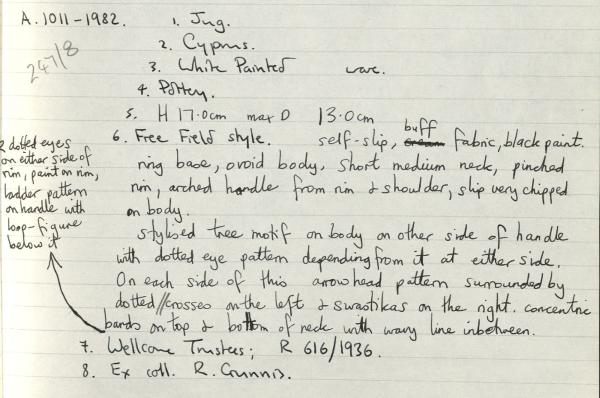 A.1011-1982. 1. Jug.
247/8
2. Cyprus.
3. White Painted ware.
4. Pottery.
5. H 17.0cm max D 13.0cm
6. Free Field style. self-slip, buff cream fabric, black paint.
ring base, ovoid body, short medium neck, pinched
rim, arched handle from rim & shoulder, slip very chipped
on body.
stylised tree motif on body on other side of handle
with dotted eye pattern depending from it at either side.
On each side of this arrowhead pattern surrounded by
dotted // crosses on the left & swastikas on the right. concentric
bands on top & bottom of neck with wavy line inbetween.
7. Wellcome Trustees; R 616/1936.
8. Ex coll. R. Gunnis.
2 dotted eyes
on either side of
rim, paint on rim,
ladder pattern
on handle with
loop-figure
below it